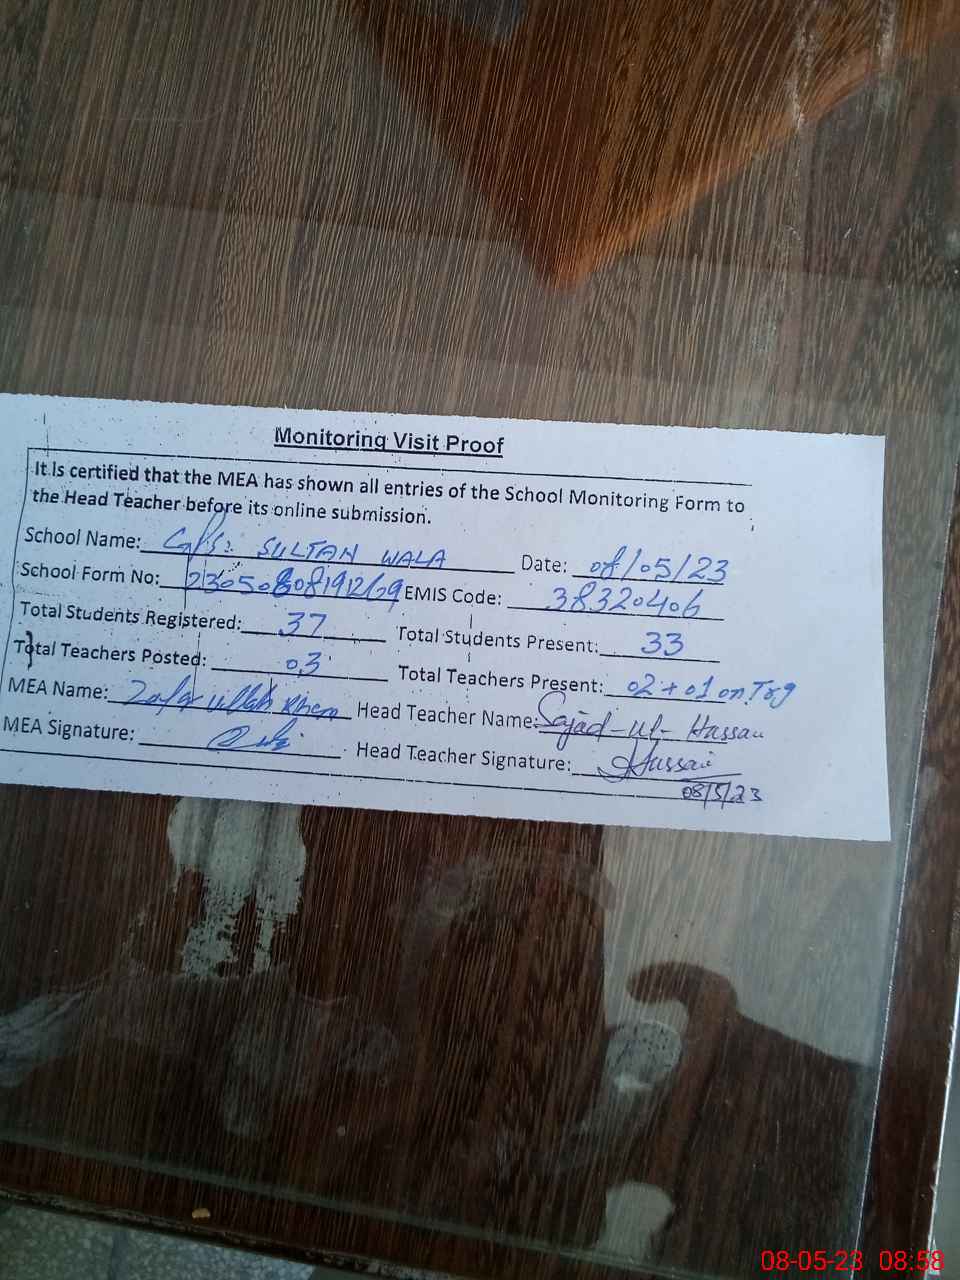 Monitoring Visit Proof
It is certified that the MEA has shown all entries of the School Monitoring Form to
the Head Teacher before its online submission.
School Name: GPS: SULTAN WALA Date: 08/05/23
School Form No: EMIS Code: 38320406
Total Students Registered: 37 Total Students Present: 33
Total Teachers Posted: 03 Total Teachers Present: 02 + 01 on Trg
MEA Name: Zafar ullah Khan Head Teacher Name: Sajad-ul-Hassan
MEA Signature: Head Teacher Signature: Hassan
08/5/23
08-05-23 08:58